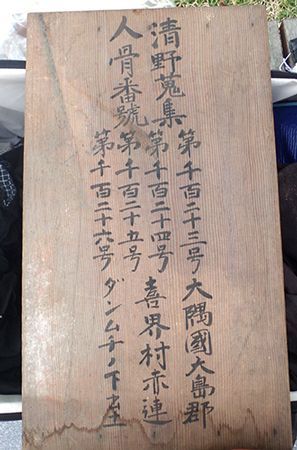 清野蒐集
人骨番號
第千百二十三号
第千百二十四号
第千百二十五号
第千百二十六号
大隅國大島郡
喜界村赤連
ダンムチノ下